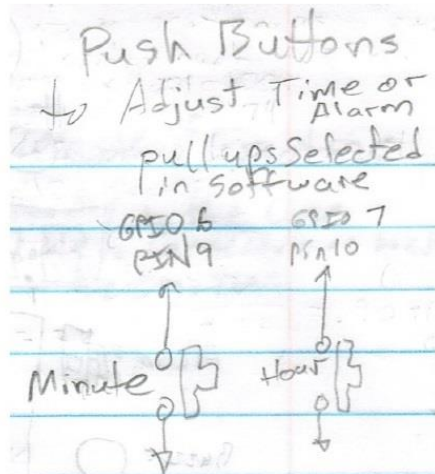 Push Buttons
to Adjust Time or
Alarm
pull ups Selected
in Software
GPIO 6 GPIO 7
PIN 9 Pin 10
Minute Hour